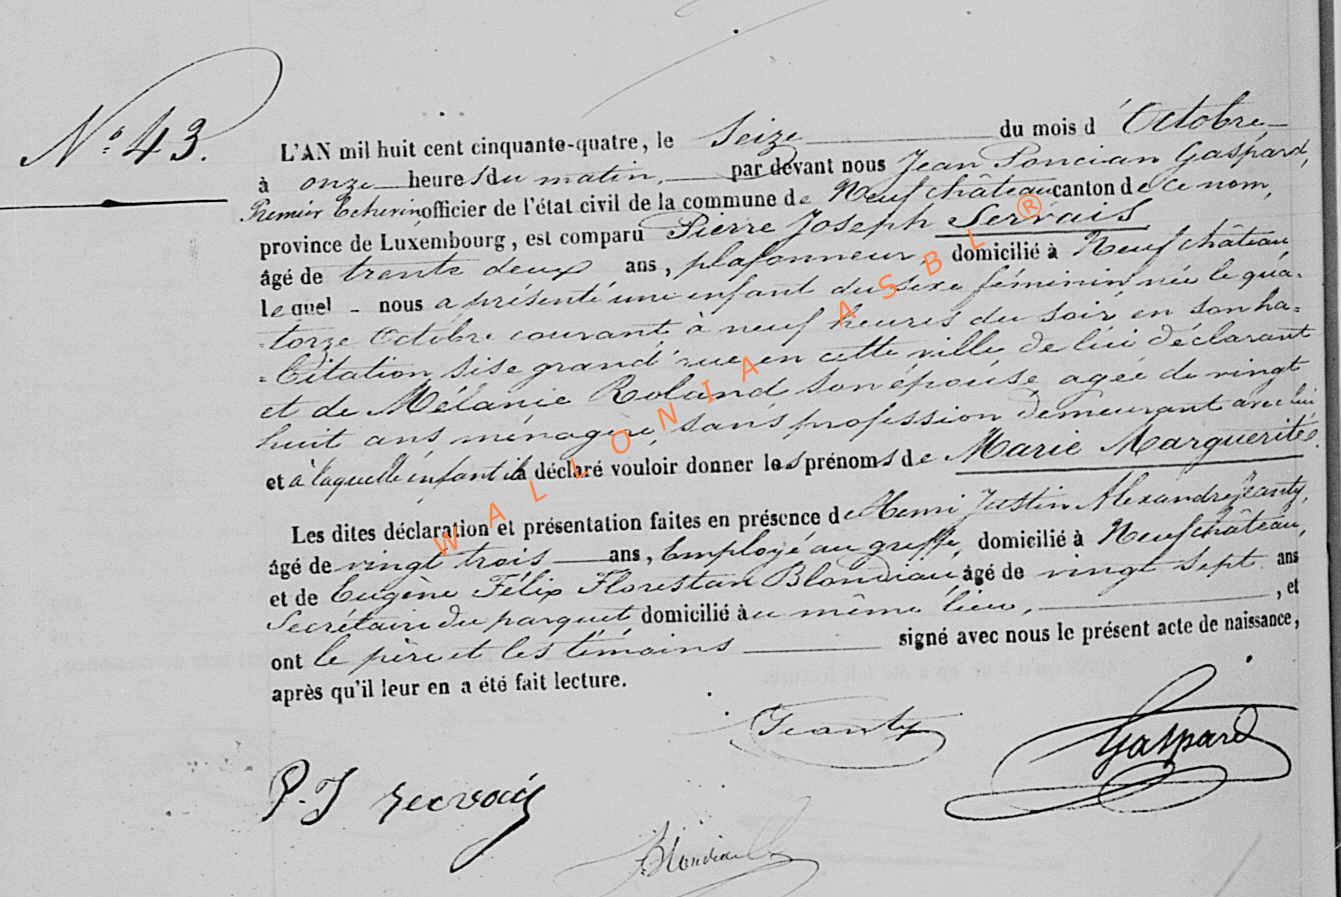 N° 43.
L'AN mil huit cent cinquante-quatre, le Seize du mois d'Octobre
à onze heures du matin, par devant nous Jean Poncian Gaspard,
Premier Echevin officier de l'état civil de la commune de Neufchâteau canton de ce nom,
province de Luxembourg, est comparu Pierre Joseph Servais
âgé de trente deux ans, plafonneur, domicilié à Neufchâteau
lequel nous a présenté une enfant du sexe féminin née le qua-
-torze Octobre courant à neuf heures du soir en son ha-
-bitation sise grand'rue en cette ville de lui déclarant
et de Mélanie Roland son épouse agée de vingt
huit ans ménagère, sans profession demeurant avec lui
et à laquelle enfant il a déclaré vouloir donner les prénoms de Marie Marguerite.
Les dites déclaration et présentation faites en présence de Henri Justin Alexandre Jeanty,
âgé de vingt trois ans, Employé au greffe, domicilié à Neufchâteau,
et de Eugène Félix Florestan Blondiau, âgé de vingt sept ans
Secrétaire du parquet domicilié au même lieu, , et
ont le père et les témoins signé avec nous le présent acte de naissance,
après qu'il leur en a été fait lecture.
Jeanty
Gaspard
P. J Servais
Blondiau
WALLONIA ASBL ®